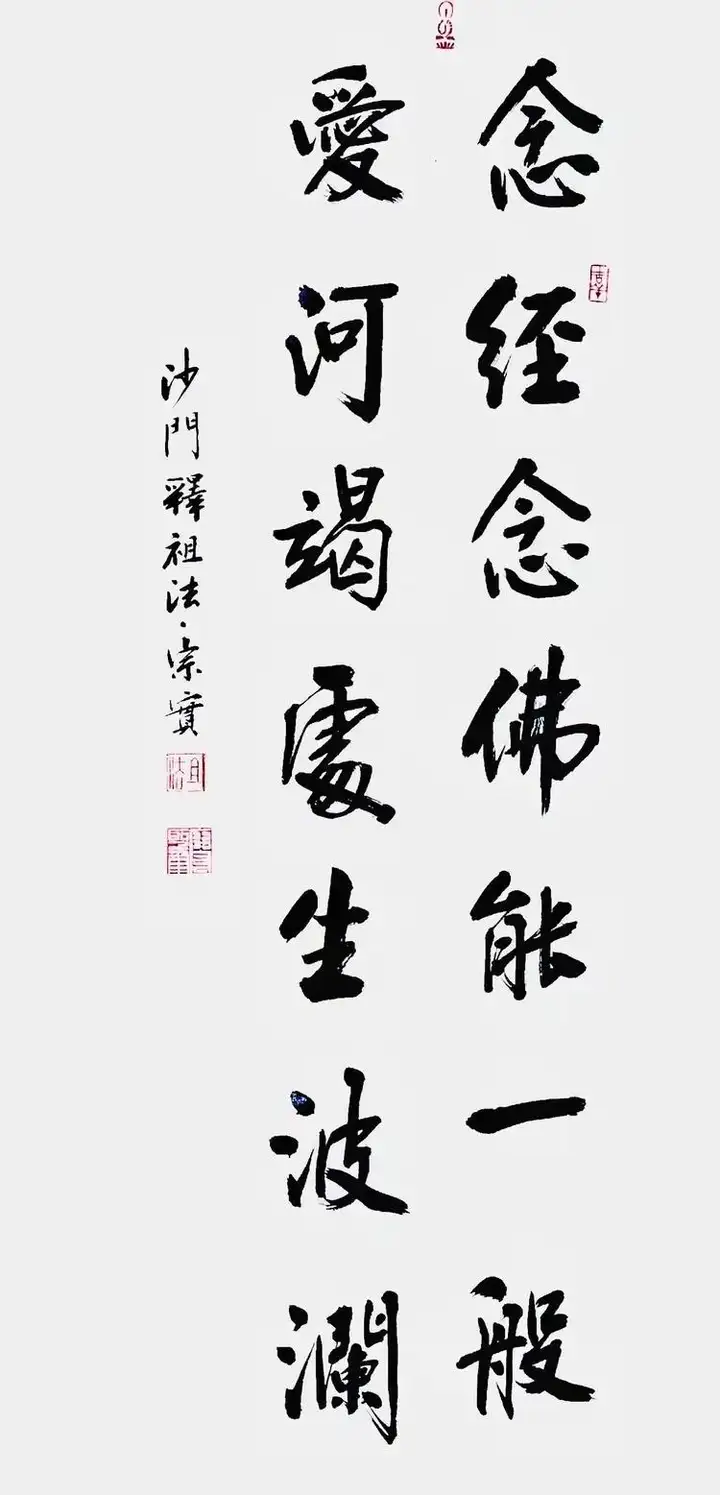 念經念佛能一般
愛河竭處生波瀾
沙門釋祖法·宗實